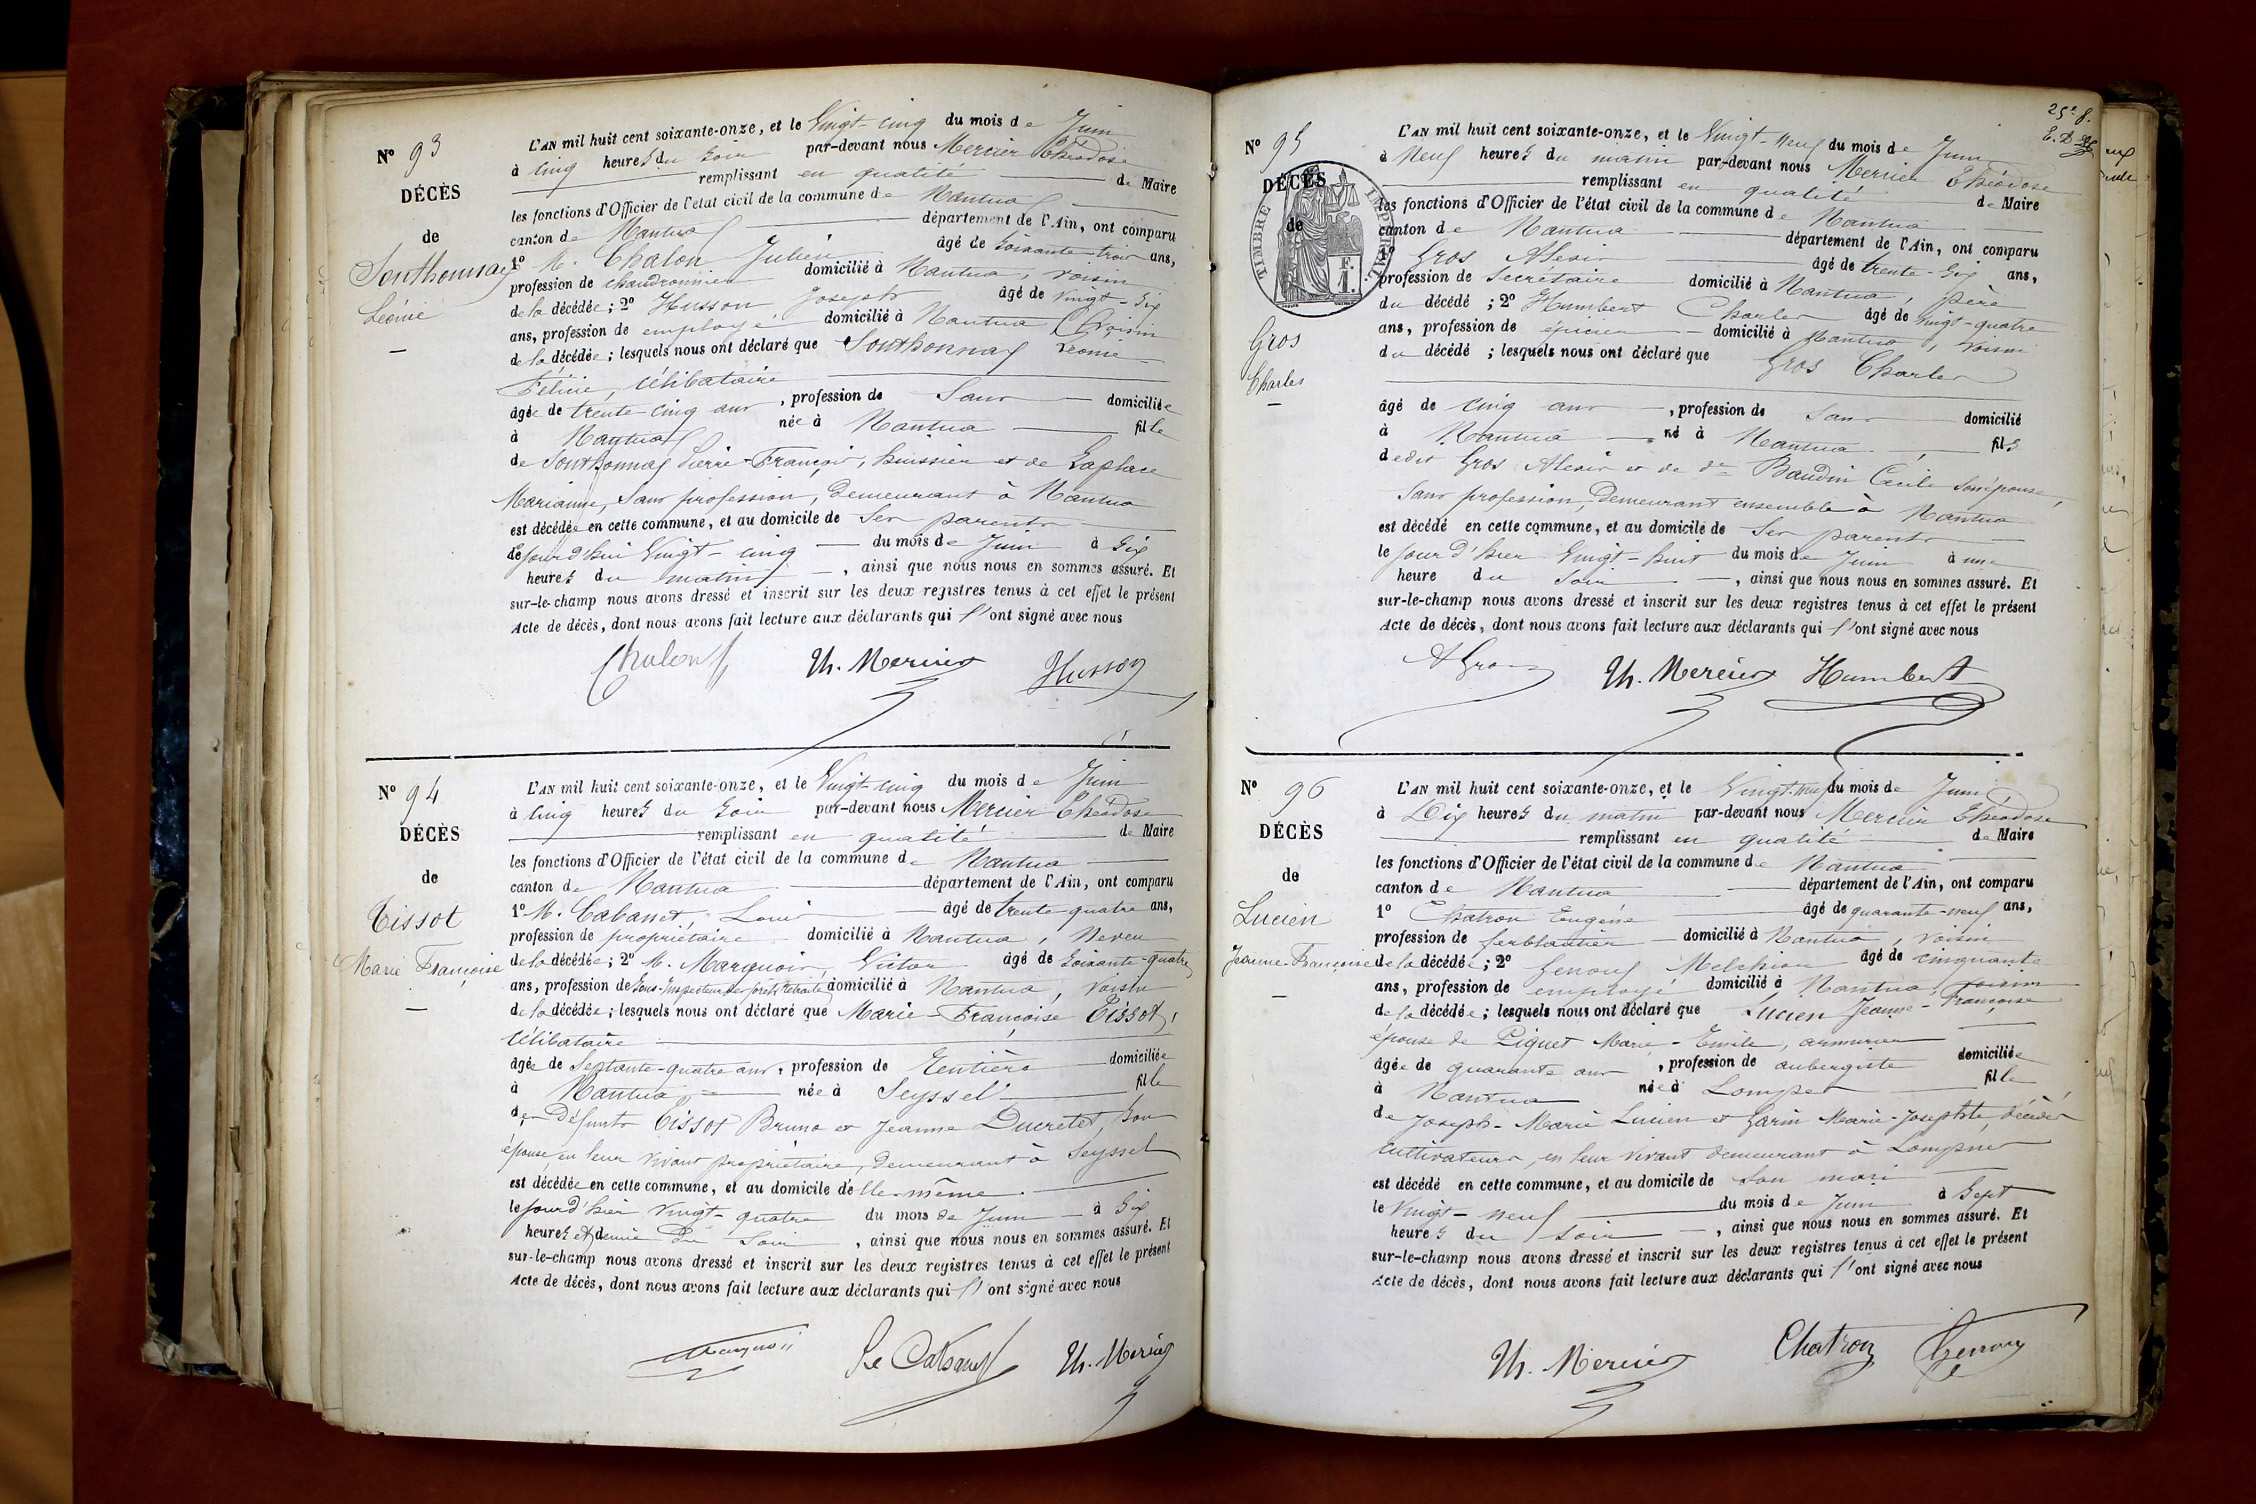 N° 93
DÉCÈS
de
Southonnay
Léonie
L'AN mil huit cent soixante-onze, et le Vingt-cinq du mois de Juin
à cinq heures du soir par-devant nous Mercier Théodose
remplissant en qualité de Maire
les fonctions d'Officier de l'état civil de la commune de Nantua
canton de Nantua département de l'Ain, ont comparu
1° M. Chalon Julien âgé de soixante-trois ans,
profession de chaudronnier domicilié à Nantua, voisin
de la décédée; 2° Husson Joseph âgé de vingt-six
ans, profession de employé domicilié à Nantua, voisin
de la décédée; lesquels nous ont déclaré que Southonnay Léonie
Félicie, célibataire
âgée de trente-cinq ans, profession de Sans domiciliée
à Nantua née à Nantua fille
de Southonnay Pierre-François, huissier et de Laplace
Marianne, sans profession, demeurant à Nantua
est décédée en cette commune, et au domicile de ses parents
le jourd'hui vingt-cinq du mois de Juin à six
heures du matin, ainsi que nous nous en sommes assuré. Et
sur-le-champ nous avons dressé et inscrit sur les deux registres tenus à cet effet le présent
Acte de décès, dont nous avons fait lecture aux déclarants qui l'ont signé avec nous
Chalon Th. Mercier Husson
N° 94
DÉCÈS
de
Tissot
Marie Françoise
L'AN mil huit cent soixante-onze, et le Vingt-cinq du mois de Juin
à cinq heures du soir par-devant nous Mercier Théodose
remplissant en qualité de Maire
les fonctions d'Officier de l'état civil de la commune de Nantua
canton de Nantua département de l'Ain, ont comparu
1° M. Cabanet, Louis âgé de trente-quatre ans,
profession de propriétaire domicilié à Nantua, neveu
de la décédée; 2° M. Victor âgé de soixante-quatre
ans, profession de Sous-Inspecteur des forêts retraité domicilié à Nantua, voisin
de la décédée; lesquels nous ont déclaré que Marie-Françoise Tissot,
célibataire
âgée de septante-quatre ans, profession de Rentière domiciliée
à Nantua née à Seyssel fille
de défunts Tissot Bruno et Jeanne Ducretet, son
épouse, en leur vivant propriétaire, demeurant à Seyssel
est décédée en cette commune, et au domicile d'elle-même
le jourd'hier vingt-quatre du mois de Juin à six
heures et demie du soir, ainsi que nous nous en sommes assuré. Et
sur-le-champ nous avons dressé et inscrit sur les deux registres tenus à cet effet le présent
Acte de décès, dont nous avons fait lecture aux déclarants qui l'ont signé avec nous
Th. Mercier
25e f.
N° 95
DÉCÈS
de
TIMBRE IMPÉRIAL
F.
1.
Gros
Charles
L'AN mil huit cent soixante-onze, et le Vingt-neuf du mois de Juin
à Neuf heures du matin par-devant nous Mercier Théodose
remplissant en qualité de Maire
les fonctions d'Officier de l'état civil de la commune de Nantua
canton de Nantua département de l'Ain, ont comparu
1° Gros Alexis âgé de trente-six ans,
profession de Secrétaire domicilié à Nantua, père
du décédé; 2° Humbert Charles âgé de vingt-quatre
ans, profession de épicier domicilié à Nantua, voisin
du décédé; lesquels nous ont déclaré que Gros Charles
âgé de cinq ans, profession de Sans domicilié
à Nantua né à Nantua fils
dedit Gros Alexis et de de Baudin Cécile son épouse,
sans profession, demeurant ensemble à Nantua
est décédé en cette commune, et au domicile de ses parents
le jour d'hier vingt-huit du mois de Juin à une
heure du soir, ainsi que nous nous en sommes assuré. Et
sur-le-champ nous avons dressé et inscrit sur les deux registres tenus à cet effet le présent
Acte de décès, dont nous avons fait lecture aux déclarants qui l'ont signé avec nous
A Gros Th. Mercier Humbert
N° 96
DÉCÈS
de
Lucien
Jeanne-Françoise
L'AN mil huit cent soixante-onze, et le du mois de Juin
à Dix heures du matin par-devant nous Mercier Théodose
remplissant en qualité de Maire
les fonctions d'Officier de l'état civil de la commune de Nantua
canton de Nantua département de l'Ain, ont comparu
1° Chatron Eugène âgé de quarante-neuf ans,
profession de ferblantier domicilié à Nantua, voisin
de la décédée; 2° Genoux Melchior âgé de cinquante
ans, profession de employé domicilié à Nantua, voisin
de la décédée; lesquels nous ont déclaré que Lucien Jeanne-Françoise
épouse de Piquet Marie-Emile, armurier
âgée de quarante ans, profession de aubergiste domiciliée
à Nantua née à Lompnes fille
de Joseph-Marie Lucien et Garin Marie-Josephte, décédés
cultivateurs, en leur vivant demeurant à Lompnes
est décédé en cette commune, et au domicile de son mari
le vingt-neuf du mois de Juin à sept
heures du soir, ainsi que nous nous en sommes assuré. Et
sur-le-champ nous avons dressé et inscrit sur les deux registres tenus à cet effet le présent
Acte de décès, dont nous avons fait lecture aux déclarants qui l'ont signé avec nous
Th. Mercier Chatron Genoux